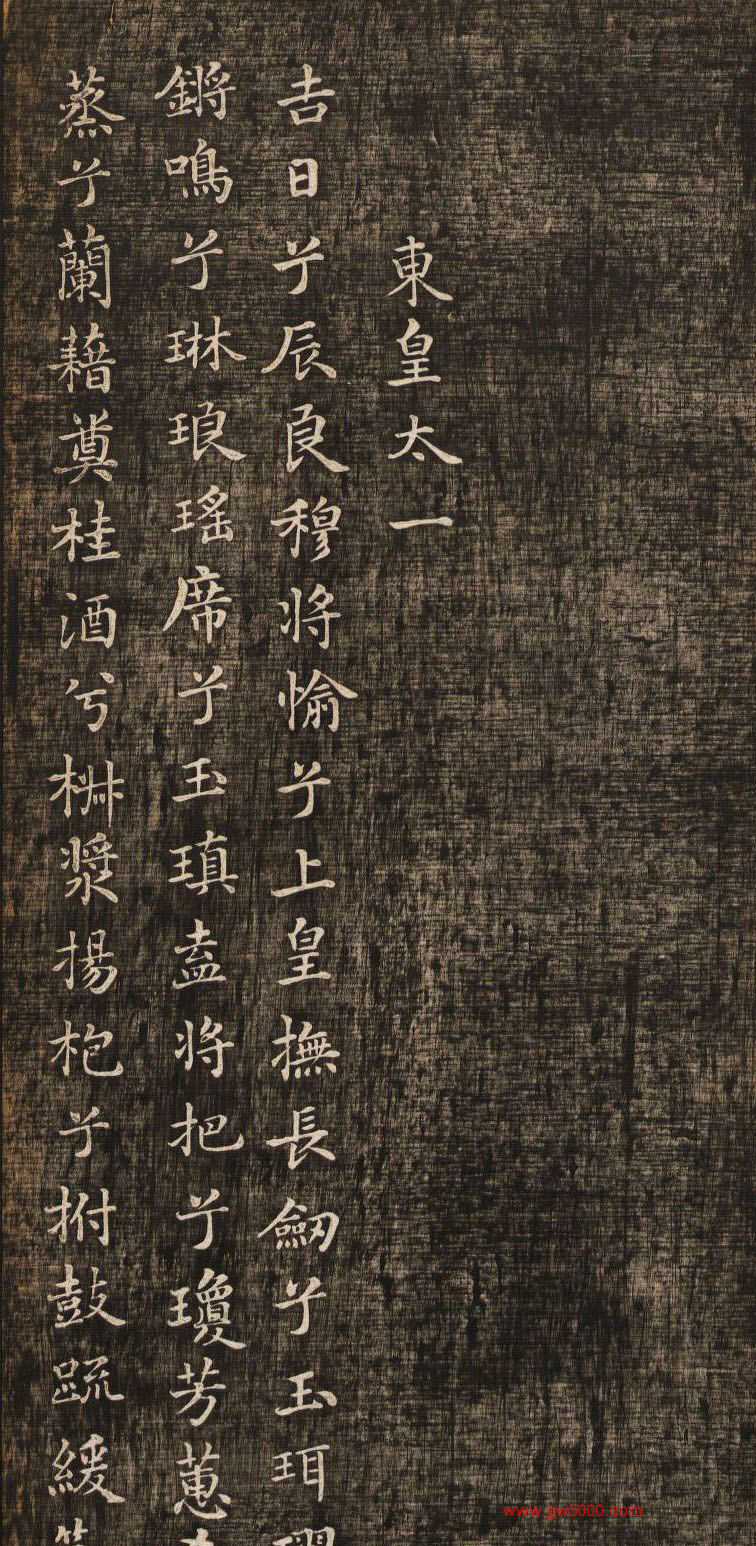 東皇太一
吉日兮辰良穆將愉兮上皇撫長劒兮玉珥
鏘鳴兮琳琅瑤席兮玉瑱盍將把兮瓊芳蕙
蒸兮蘭藉奠桂酒兮椒漿揚枹兮拊鼓疏緩
www.gw5000.com